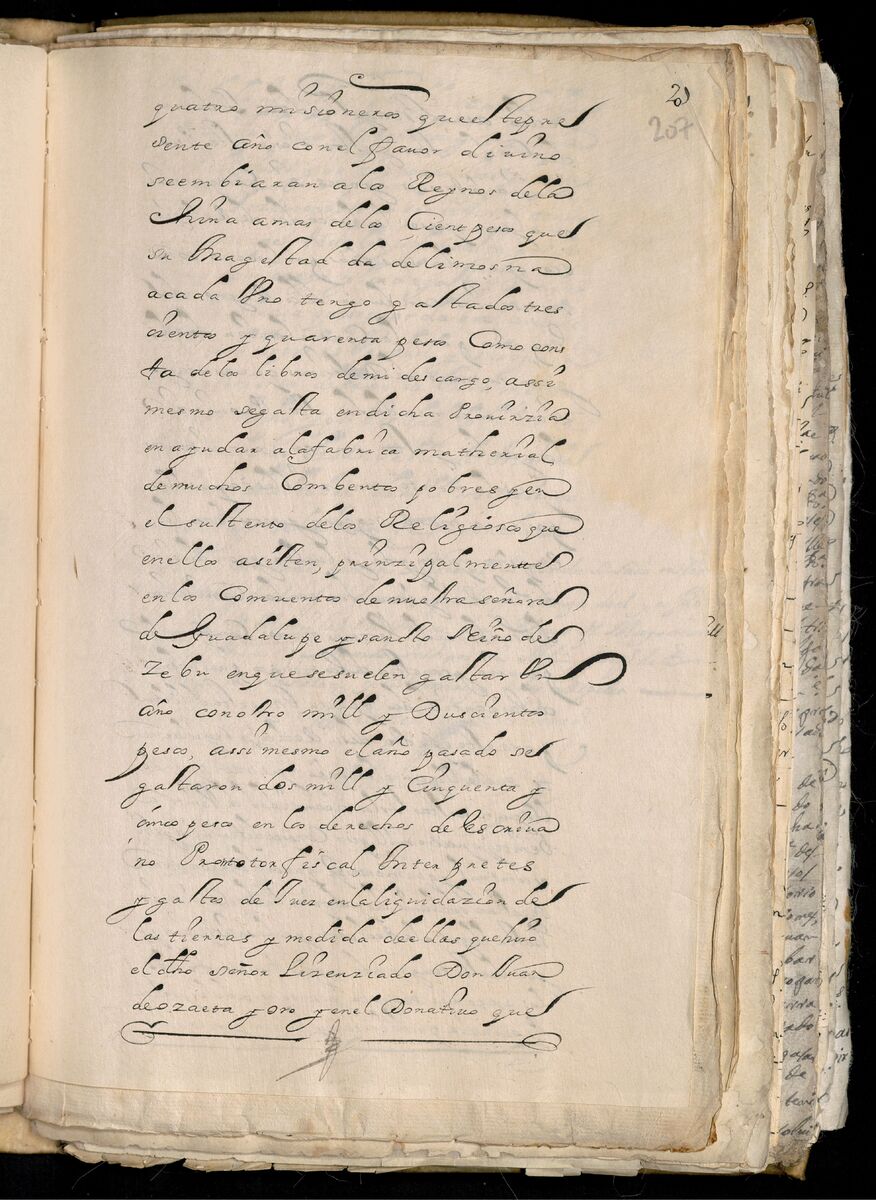 20
207
quatro misioneros que este pre
sente año con el fauor diuino
se embiaran a los Reynos de la
china a mas de los Cient pesos que
su Magestad da de limosna
a cada Uno tengo gastados tres
cientos y quarenta pesos Como cons
ta de los libros de mi descargo, assi
mesmo se gasta en dicha Prouinzia
en ayudar a la fabrica matherial
de muchos Combentos pobres y en
el sustento de los Religiosos que
en ellos asisten, prinzipalmente
en los Comuentos de nuestra señora
de Guadalupe y sancto Niño de
Zebu en que se suelen gastar Un
año con otro mill y Duscientos
pesos, assi mesmo el año pasado se
gastaron dos mill y Cinquenta y
cinco pesos en los derechos de escriua
no Promotor fiscal, Interpretes
y gastos de Juez en la liquidazion de
las tierras y medida de ellas que hizo
el dho señor Lizenziado Don Juan
de ozaeta y oro y en el Donatiuo que